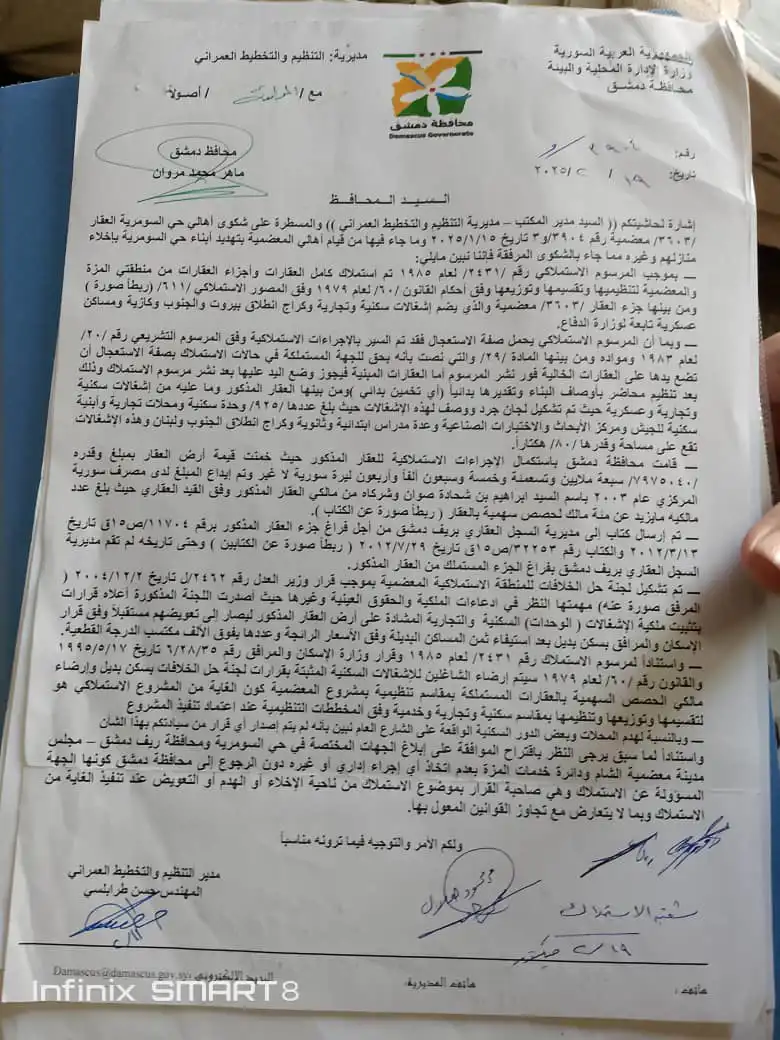 الجمهورية العربية السورية
وزارة الإدارة المحلية والبيئة
محافظة دمشق
محافظة دمشق
Damascus Governorate
مديرية: التنظيم والتخطيط العمراني
مع / / أصولاً
محافظ دمشق
ماهر محمد مروان
رقم:
تاريخ: ١٩ / ٢ /٢٠٢٥
السيد المحافظ
إشارة لحاشيتكم (( السيد مدير المكتب – مديرية التنظيم والتخطيط العمراني )) والمسطرة على شكوى أهالي حي السومرية العقار
/٣٦٠٣/ معضمية رقم ٣٩٠٤/و٣ تاريخ ٢٠٢٥/١/١٥ وما جاء فيها من قيام أهالي المعضمية بتهديد أبناء حي السومرية بإخلاء
منازلهم وغيره مما جاء بالشكوى المرفقة فإننا نبين مايلي:
– بموجب المرسوم الاستملاكي رقم /٢٤٣١/ لعام ١٩٨٥ تم استملاك كامل العقارات وأجزاء العقارات من منطقتي المزة
والمعضمية لتنظيمها وتقسيمها وتوزيعها وفق أحكام القانون /٦٠/ لعام ١٩٧٩ وفق المصور الاستملاكي /٦١١/ (ربطاً صورة )
ومن بينها جزء العقار /٣٦٠٣/ معضمية والذي يضم إشغالات سكنية وتجارية وكراج انطلاق بيروت والجنوب وكازية ومساكن
عسكرية تابعة لوزارة الدفاع.
– وبما أن المرسوم الاستملاكي يحمل صفة الاستعجال فقد تم السير بالإجراءات الاستملاكية وفق المرسوم التشريعي رقم /٢٠/
لعام ١٩٨٣ ومواده ومن بينها المادة /٢٩/ والتي نصت بأنه يحق للجهة المستملكة في حالات الاستملاك بصفة الاستعجال أن
تضع يدها على العقارات الخالية فور نشر المرسوم أما العقارات المبنية فيجوز وضع اليد عليها بعد نشر مرسوم الاستملاك وذلك
بعد تنظيم محاضر بأوصاف البناء وتقديرها بدائياً (أي تخمين بدائي )ومن بينها العقار المذكور وما عليه من إشغالات سكنية
وتجارية وعسكرية حيث تم تشكيل لجان جرد ووصف لهذه الإشغالات حيث بلغ عددها /٩٢٥/ وحدة سكنية ومحلات تجارية وأبنية
سكنية للجيش ومركز الأبحاث والاختبارات الصناعية وعدة مدارس ابتدائية وثانوية وكراج انطلاق الجنوب ولبنان وهذه الإشغالات
تقع على مساحة وقدرها /٨٠/ هكتاراً.
– قامت محافظة دمشق باستكمال الإجراءات الاستملاكية للعقار المذكور حيث خمنت قيمة أرض العقار بمبلغ وقدره
/٧٩٧٥٠٤٠/ سبعة ملايين وتسعمئة وخمسة وسبعون ألفاً وأربعون ليرة سورية لا غير وتم إيداع المبلغ لدى مصرف سورية
المركزي عام ٢٠٠٣ باسم السيد ابراهيم بن شحادة صوان وشركاه من مالكي العقار المذكور وفق القيد العقاري حيث بلغ عدد
مالكيه مايزيد عن مئة مالك لحصص سهمية بالعقار ( ربطاً صورة عن الكتاب ).
– تم إرسال كتاب إلى مديرية السجل العقاري بريف دمشق من أجل فراغ جزء العقار المذكور برقم ١١٧٠٤/ص١٥ق تاريخ
٢٠١٢/٣/١٣ والكتاب رقم ٣٢٢٥٣/ص١٥ق تاريخ ٢٠١٢/٧/٢٩ ( ربطاً صورة عن الكتابين ) وحتى تاريخه لم تقم مديرية
السجل العقاري بريف دمشق بفراغ الجزء المستملك من العقار المذكور.
– تم تشكيل لجنة حل الخلافات للمنطقة الاستملاكية المعضمية بموجب قرار وزير العدل رقم ٢٤٦٢/ل تاريخ ٢٠٠٤/١٢/٢ (
المرفق صورة عنه) مهمتها النظر في ادعاءات الملكية والحقوق العينية وغيرها حيث أصدرت اللجنة المذكورة أعلاه قرارات
بتثبيت ملكية الإشغالات ( الوحدات) السكنية والتجارية المشادة على أرض العقار المذكور ليصار إلى تعويضهم مستقبلاً وفق قرار
الإسكان والمرافق بسكن بديل بعد استيفاء ثمن المساكن البديلة وفق الأسعار الرائجة وعددها يفوق الألف مكتسب الدرجة القطعية.
– واستناداً لمرسوم الاستملاك رقم /٢٤٣١/ لعام ١٩٨٥ وقرار وزارة الإسكان والمرافق رقم ٦/٢٨/٣٥ تاريخ ١٩٩٥/٥/١٧
والقانون رقم /٦٠/ لعام ١٩٧٩ سيتم إرضاء الشاغلين للإشغالات السكنية المثبتة بقرارات لجنة حل الخلافات بسكن بديل وإرضاء
مالكي الحصص السهمية بالعقارات المستملكة بمقاسم تنظيمية بمشروع المعضمية كون الغاية من المشروع الاستملاكي هو
لتقسيمها وتوزيعها وتنظيمها بمقاسم سكنية وتجارية وخدمية وفق المخططات التنظيمية عند اعتماد تنفيذ المشروع
– وبالنسبة لهدم المحلات وبعض الدور السكنية الواقعة على الشارع العام نبين بأنه لم يتم إصدار أي قرار من سيادتكم بهذا الشأن
واستناداً لما سبق يرجى النظر باقتراح الموافقة على إبلاغ الجهات المختصة في حي السومرية ومحافظة ريف دمشق – مجلس
مدينة معضمية الشام ودائرة خدمات المزة بعدم اتخاذ أي إجراء إداري أو غيره دون الرجوع إلى محافظة دمشق كونها الجهة
المسؤولة عن الاستملاك وهي صاحبة القرار بموضوع الاستملاك من ناحية الإخلاء أو الهدم أو التعويض عند تنفيذ الغاية من
الاستملاك وبما لا يتعارض مع تجاوز القوانين المعول بها.
ولكم الأمر والتوجيه فيما ترونه مناسباً
مدير التنظيم والتخطيط العمراني
المهندس حسن طرابلسي
محمود هلال
شعبة الاستملاك
١٩/٢
هاتف :
هاتف المديرية:
البريد الالكتروني: Damascus@damascus.gov.sy
Infinix SMART 8